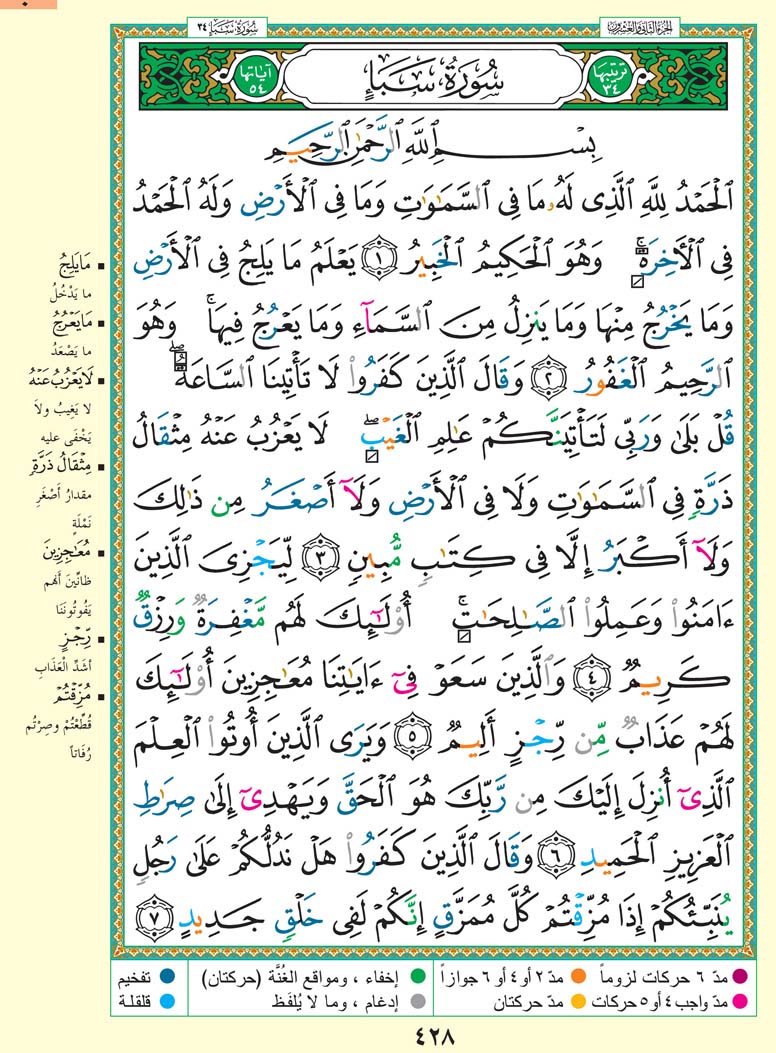 الجزء الثاني والعشرون
سُورَةُ سَبَإٍ ٣٤
ترتيبها ٣٤
سُورَةُ سَبَإٍ
آياتها ٥٤
بِسْمِ ٱللَّهِ ٱلرَّحْمَٰنِ ٱلرَّحِيمِ
ٱلْحَمْدُ لِلَّهِ ٱلَّذِى لَهُۥ مَا فِى ٱلسَّمَٰوَٰتِ وَمَا فِى ٱلْأَرْضِ وَلَهُ ٱلْحَمْدُ
فِى ٱلْءَاخِرَةِ ۚ وَهُوَ ٱلْحَكِيمُ ٱلْخَبِيرُ ١ يَعْلَمُ مَا يَلِجُ فِى ٱلْأَرْضِ
وَمَا يَخْرُجُ مِنْهَا وَمَا يَنزِلُ مِنَ ٱلسَّمَآءِ وَمَا يَعْرُجُ فِيهَا ۚ وَهُوَ
ٱلرَّحِيمُ ٱلْغَفُورُ ٢ وَقَالَ ٱلَّذِينَ كَفَرُوا۟ لَا تَأْتِينَا ٱلسَّاعَةُ ۖ
قُلْ بَلَىٰ وَرَبِّى لَتَأْتِيَنَّكُمْ عَٰلِمِ ٱلْغَيْبِ ۖ لَا يَعْزُبُ عَنْهُ مِثْقَالُ
ذَرَّةٍ فِى ٱلسَّمَٰوَٰتِ وَلَا فِى ٱلْأَرْضِ وَلَآ أَصْغَرُ مِن ذَٰلِكَ
وَلَآ أَكْبَرُ إِلَّا فِى كِتَٰبٍ مُّبِينٍ ٣ لِّيَجْزِىَ ٱلَّذِينَ
ءَامَنُوا۟ وَعَمِلُوا۟ ٱلصَّٰلِحَٰتِ ۚ أُو۟لَٰٓئِكَ لَهُم مَّغْفِرَةٌ وَرِزْقٌ
كَرِيمٌ ٤ وَٱلَّذِينَ سَعَوْ فِىٓ ءَايَٰتِنَا مُعَٰجِزِينَ أُو۟لَٰٓئِكَ
لَهُمْ عَذَابٌ مِّن رِّجْزٍ أَلِيمٌ ٥ وَيَرَى ٱلَّذِينَ أُوتُوا۟ ٱلْعِلْمَ
ٱلَّذِىٓ أُنزِلَ إِلَيْكَ مِن رَّبِّكَ هُوَ ٱلْحَقَّ وَيَهْدِىٓ إِلَىٰ صِرَٰطِ
ٱلْعَزِيزِ ٱلْحَمِيدِ ٦ وَقَالَ ٱلَّذِينَ كَفَرُوا۟ هَلْ نَدُلُّكُمْ عَلَىٰ رَجُلٍ
يُنَبِّئُكُمْ إِذَا مُزِّقْتُمْ كُلَّ مُمَزَّقٍ إِنَّكُمْ لَفِى خَلْقٍ جَدِيدٍ ٧
مَا يَلِجُ
ما يَدْخُلُ
مَا يَعْرُجُ
ما يَصْعَدُ
لَا يَعْزُبُ عَنْهُ
لا يَغِيبُ ولا
يَخْفَى عليه
مِثْقَالُ ذَرَّةٍ
مقدارُ أَصْغَرِ
نَمْلَةٍ
مُعَٰجِزِينَ
ظانِّينَ أنهم
يَفُوتُونَنَا
رِّجْزٍ
أشَدِّ الْعَذَابِ
مُزِّقْتُمْ
قُطِّعْتُمْ وصِرْتُم
رُفَاتاً
مدّ ٦ حركات لزوماً
مدّ ٢ أو ٤ أو ٦ جوازاً
إخفاء ، ومواقع الغُنَّة (حركتان)
تفخيم
مدّ واجب ٤ أو ٥ حركات
مدّ حركتان
إدغام ، وما لا يُلفَظ
قلقلة
٤٢٨